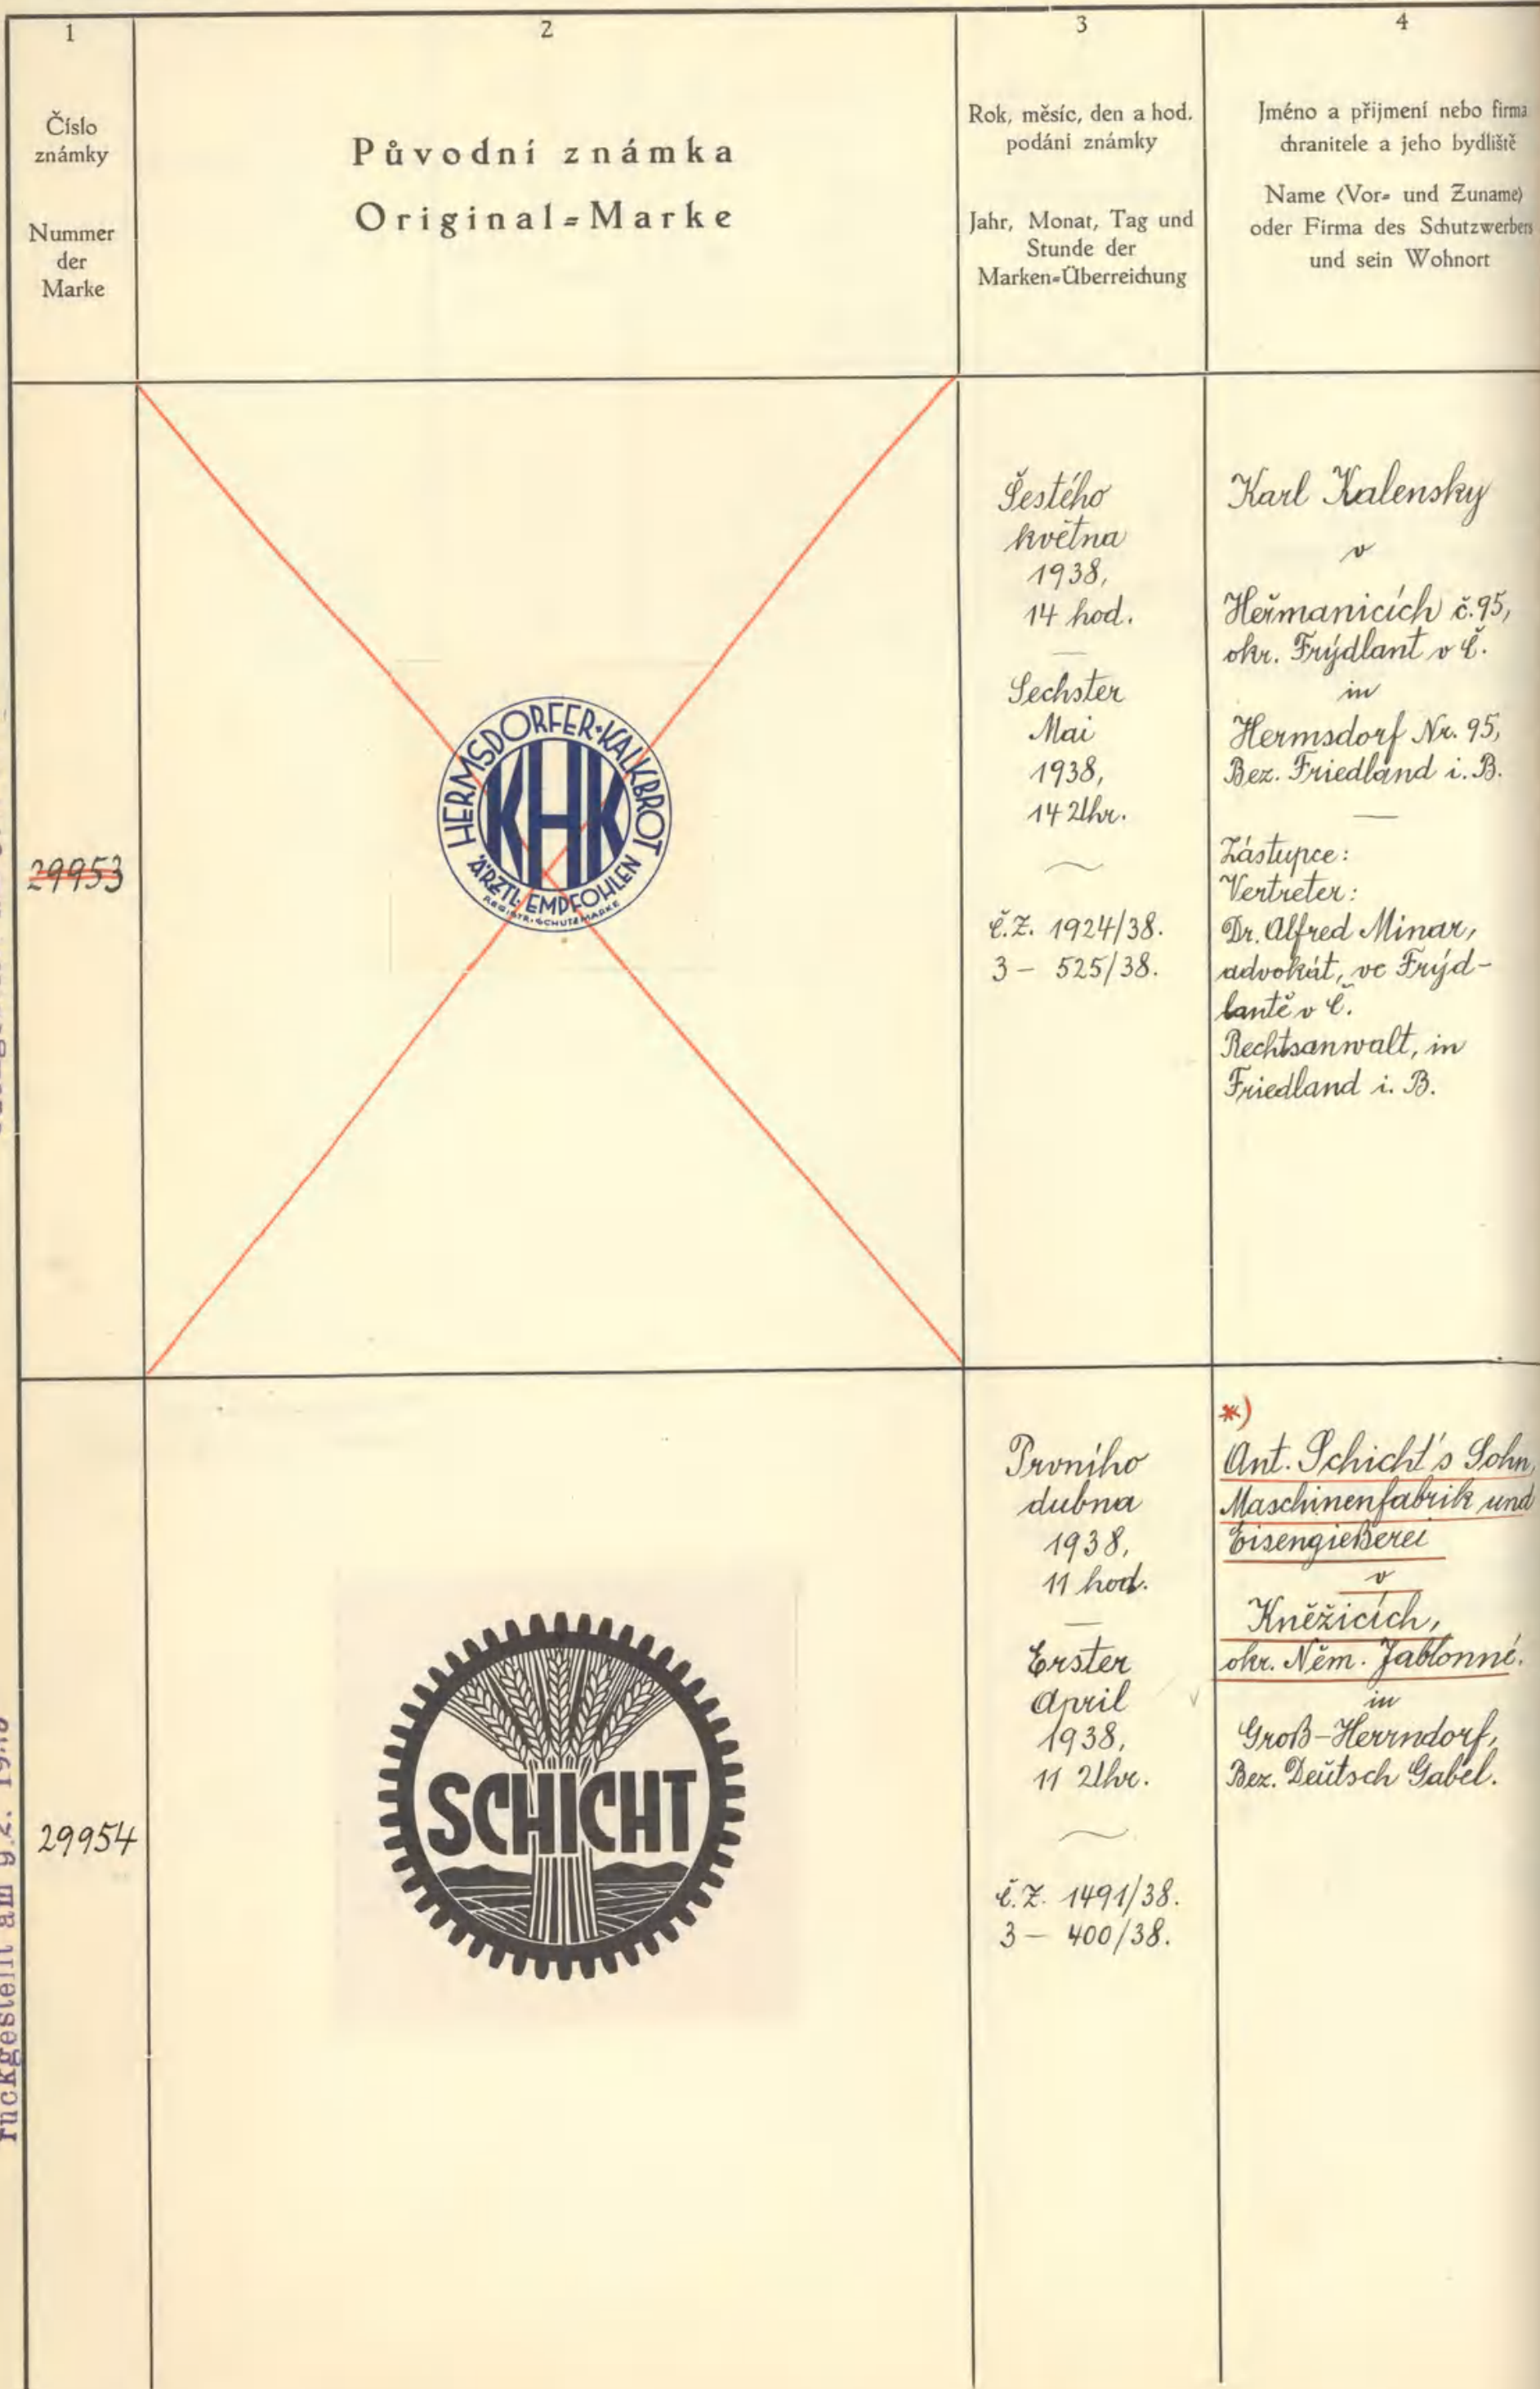 1
Číslo
známky
Nummer
der
Marke
2
Původní známka
Original=Marke
3
Rok, měsíc, den a hod.
podání známky
Jahr, Monat, Tag und
Stunde der
Marken=Überreichung
4
Jméno a přijmení nebo firma
chranitele a jeho bydliště
Name (Vor= und Zuname)
oder Firma des Schutzwerbers
und sein Wohnort
29953
HERMSDORFER·KALKBROT
KHK
ÄRZTL. EMPFOHLEN
REGISTR. SCHUTZMARKE
Šestého
května
1938,
14 hod.
—
Sechster
Mai
1938,
14 Uhr.
č.Z. 1924/38.
3 – 525/38.
Karl Kalensky
v
Heřmanicích č.95,
okr. Frýdlant v Č.
in
Hermsdorf Nr. 95,
Bez. Friedland i. B.
—
Zástupce:
Vertreter:
Dr. Alfred Minar,
advokát, ve Frýd-
lantě v Č.
Rechtsanwalt, in
Friedland i. B.
29954
SCHICHT
Prvního
dubna
1938,
11 hod.
—
Erster
April
1938,
11 Uhr.
č.Z. 1491/38.
3 – 400/38.
*)
Ant. Schicht's Sohn,
Maschinenfabrik und
Eisengießerei
v
Kněžicích,
okr. Něm. Jablonné.
in
Groß-Herrndorf,
Bez. Deutsch Gabel.
rückgestellt am 9.2. 19